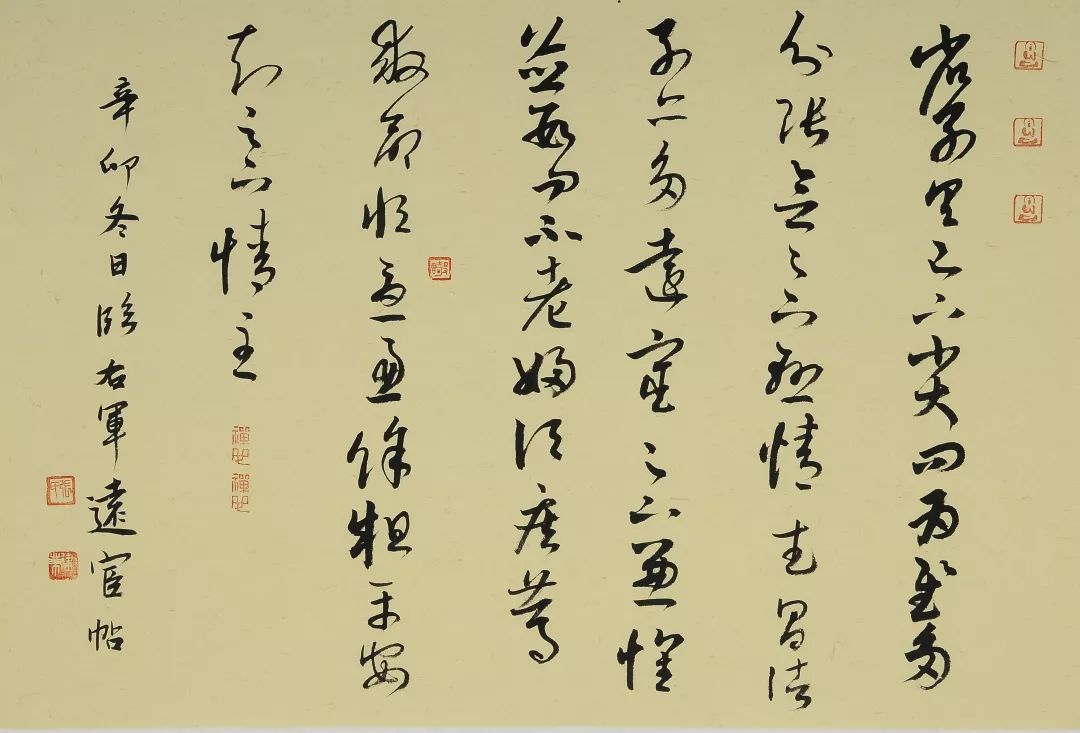 省別具足下小大問為慰多
分張念足下懸情武昌諸
子亦多遠宦足下兼懷
並數問不老婦頃疾篤
救命恒憂慮餘粗平安
知足下情至
辛卯冬日臨右軍遠宦帖